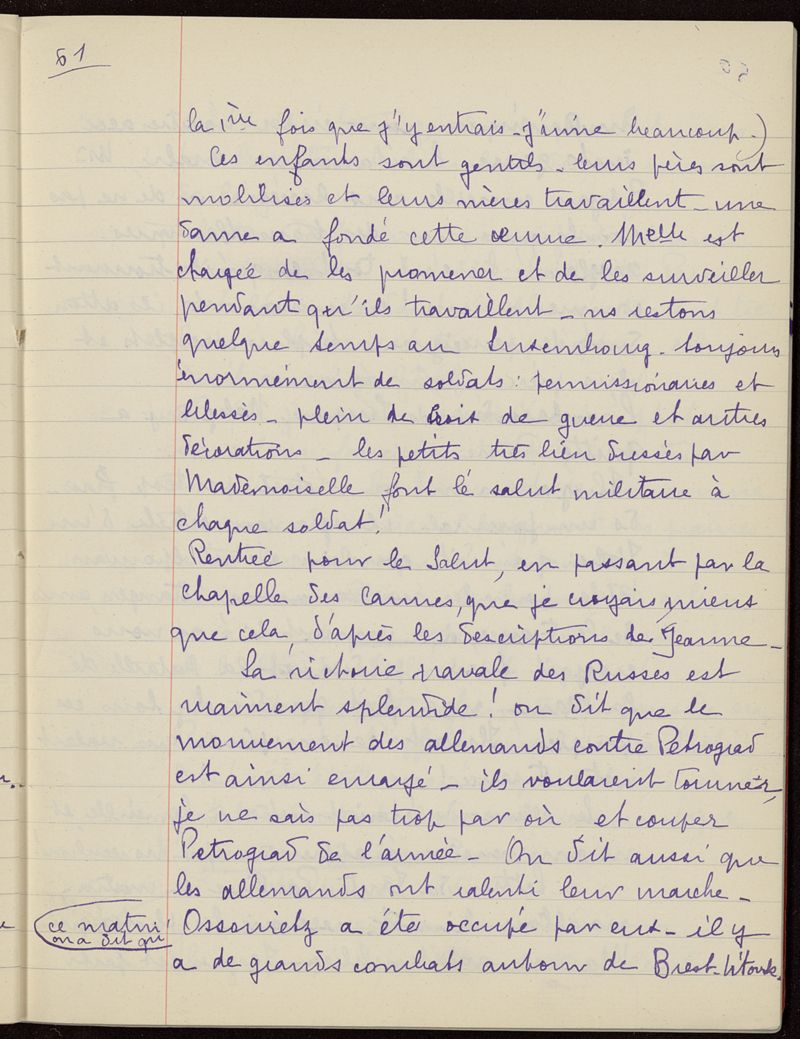 51
la 1ère fois que j'y entrais - j'aime beaucoup.)
Ces enfants sont gentils - leurs pères sont
mobilisés et leurs mères travaillent - une
dame a fondé cette œuvre. Melle est
chargée de les promener et de les surveiller
pendant qu'ils travaillent - ns restons
quelque temps au Luxembourg - toujours
énormément de soldats : permissionnaires et
blessés - plein de croix de guerre et autres
décorations - les petits très bien dressés par
Mademoiselle font le salut militaire à
chaque soldat !
Rentrée pour le Salut, en passant par la
chapelle des Carmes, que je croyais mieux
que cela, d'après les descriptions de Jeanne -
La victoire navale des Russes est
vraiment splendide ! on dit que le
mouvement des allemands contre Petrograd
est ainsi enrayé - ils voulaient tourner,
je ne sais pas trop par où et couper
Petrograd de l'armée - On dit aussi que
les allemands ont ralenti leur marche -
ce matin
on a dit qu'
Ossowietz a été occupé par eux - il y
a de grands combats autour de Brest-Litowsk.